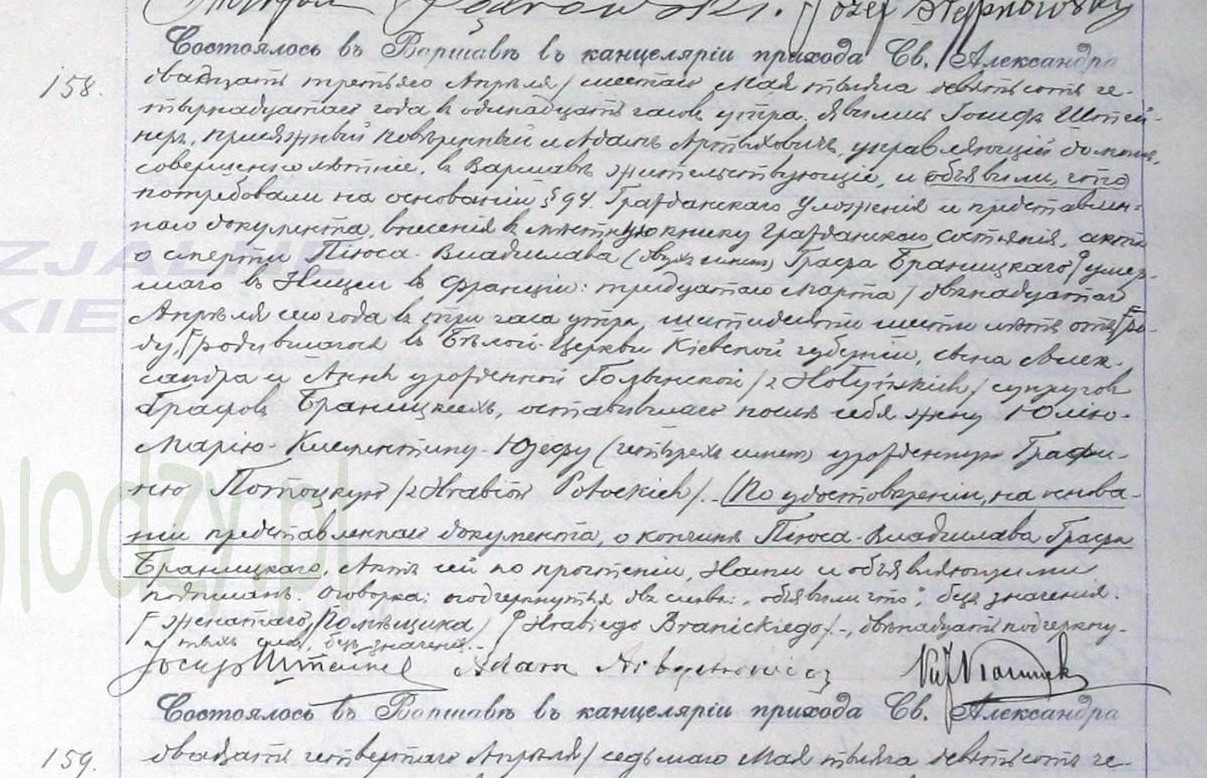 Józef
Состоялось въ Варшавѣ въ канцеляріи прихода Св. Александра
158.
двадцать третьяго Апрѣля / шестаго Мая тысяча девятьсотъ че-
тырнадцатаго года въ одинадцать часовъ утра. Явились Іосифъ Штей-
присяжный повѣренный и Адамъ управляющій домомъ,
совершеннолѣтніе, въ Варшавѣ жительствующіе, и объявили, что
потребовали на основаніи § 94. Гражданскаго Уложенія и представлен-
наго документа, внесенія въ мѣстную книгу гражданскаго состоянія, акта
о смерти Піюса-Владислава (двухъ именъ) Графа Браницкаго умер-
шаго въ Ниццѣ въ Франціи: тридцатаго Марта / двѣнадцатаго
Апрѣля сего года въ три часа утра, шестидесяти шести лѣтъ отъ ро-
ду, родившагося въ Бѣлой-Церкви Кіевской губерніи, сына Алек-
сандра и Анны урожденной Голынской / z Hołyńskich / супруговъ
Графовъ Браницкихъ, оставившаго послѣ себя жену Юлію-
Марію-Климентину-Юзефу (четырехъ именъ) урожденную Графи-
ню Потоцкую / z Hrabiów Potockich /. - (По удостовѣреніи, на основа-
ніи представленнаго документа, о кончинѣ Піюса-Владислава Графа
Браницкаго, Актъ сей по прочтеніи, Нами и объявляющими
подписанъ. Оговорка: подчеркнутыя два слова: „объявили что", безъ значенія.
женатаго, Помѣщика / Hrabiego Branickiego /-, двѣнадцать подчеркну-
тыхъ словъ, безъ значенія.
Adam
Состоялось въ Варшавѣ въ канцеляріи прихода Св. Александра
159.
двадцать четвертаго Апрѣля / седьмаго Мая тысяча девятьсотъ че-
ZJALNE
KIE
lodzy.pl